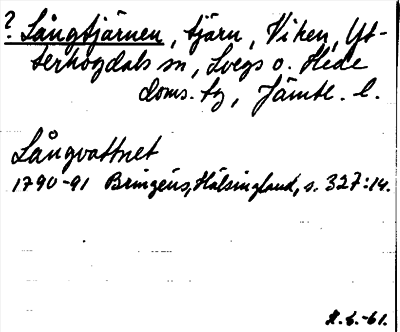 ? Långtjärnen, tjärn, Viken, Yt-
terhogdals sn, Svegs o. Hede
doms. tg, Jämtl. l.
Långvattnet
1790-91 Bringéus, Hälsingland, s. 327:14.